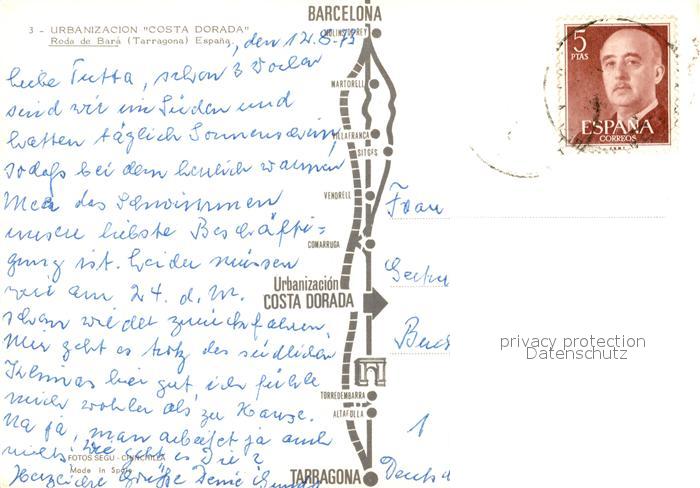 3 - URBANIZACION "COSTA DORADA"
Roda de Bará (Tarragona) España
, den 12.8.73
Liebe Tutta, schon 3 Wochen
sind wir im Süden und
hatten täglich Sonnenschein,
sodaß bei dem herrlich warmen
Meer das Schwimmen
unsere liebste Beschäfti=
gung ist. Leider müssen
wir am 24. d. M.
schon wieder zurückfahren.
Mir geht es trotz des südlichen
Klimas hier gut, ich fühle
mich wohler als zu Hause.
Na ja, man arbeitet ja auch
nichts. Wie geht es Dir?
Herzliche Grüße Deine
FOTOS SEGU - CHINCHILLA
Made in Spain
BARCELONA
MOLINS DE REY
MARTORELL
VILLAFRANCA
SITGES
VENDRELL
COMARRUGA
Urbanización
COSTA DORADA
TORREDEMBARRA
ALTAFULLA
TARRAGONA
5
PTAS
ESPAÑA
CORREOS
Frau
1
privacy protection
Datenschutz